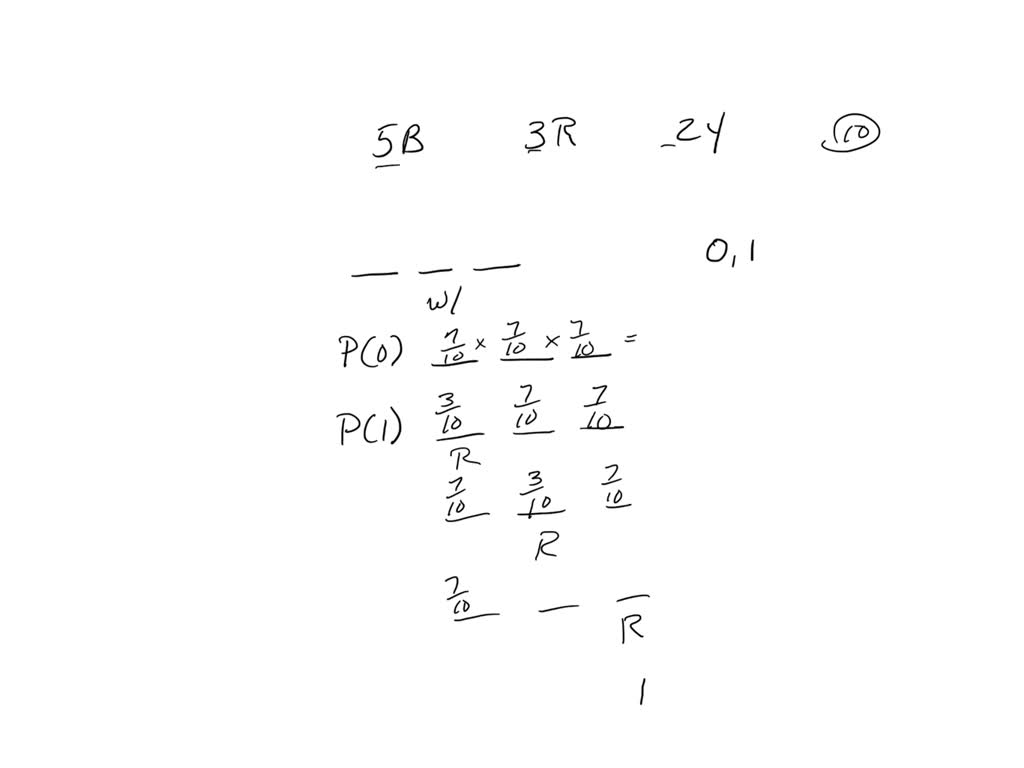 5B 3R 2Y 10
0,1
w/
P(0) 7/10 x 7/10 x 7/10 =
P(1) 3/10 7/10 7/10
R
7/10 3/10 7/10
R
7/10
R
1